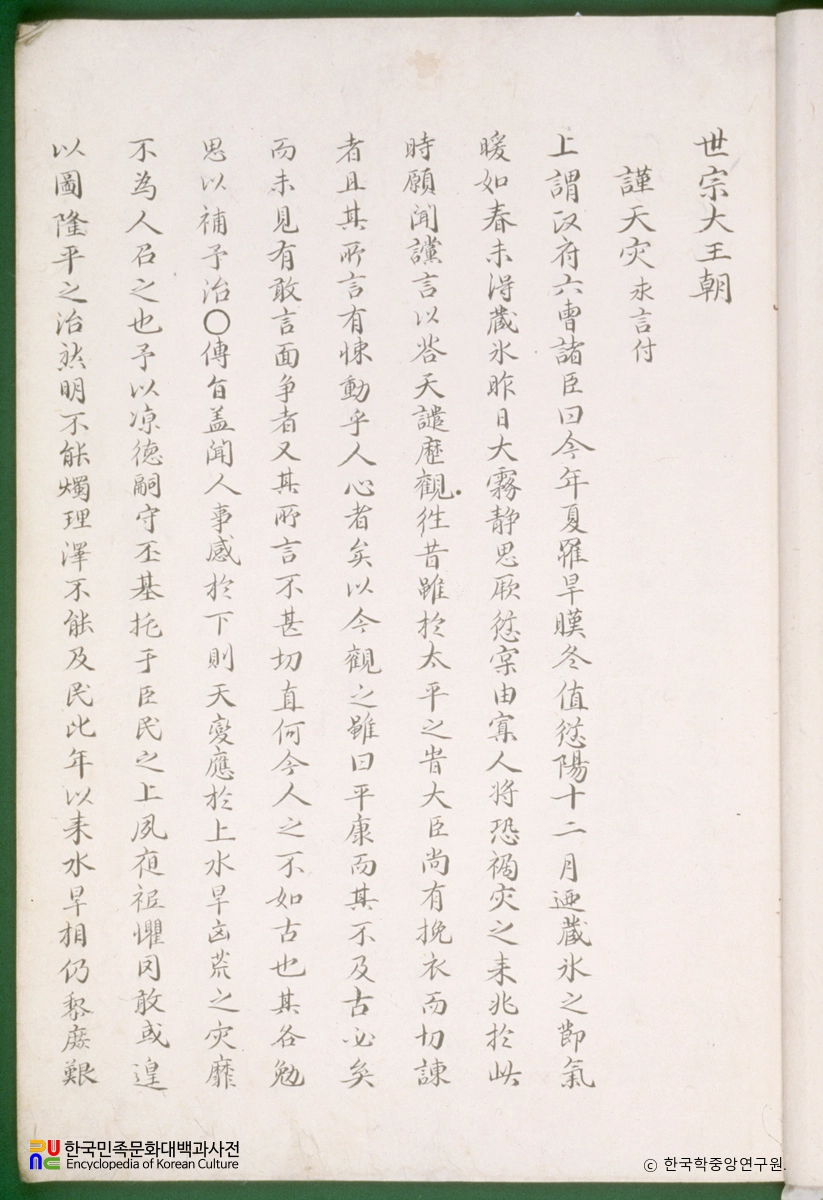 世宗大王朝
謹天灾 求言付
上謂政府六曺諸臣曰今年夏罹旱暵冬値愆陽十二月迺藏氷之節氣
暖如春未得藏氷昨日大霧静思厥愆寔由寡人將恐禍灾之来兆於此
時願聞讜言以荅天譴歷觀徃昔雖於太平之甞大臣尚有挽衣而切諫
者且其所言有悚動乎人心者矣以今觀之雖曰平康而其不及古必矣
而未見有敢言面争者又其所言不甚切直何今人之不如古也其各勉
思以補予治〇傳旨盖聞人事感於下則天變應於上水旱凶荒之灾靡
不為人召之也予以凉德嗣守丕基托于臣民之上夙夜祗懼罔敢或遑
以圖隆平之治然明不能燭理澤不能及民比年以来水旱相仍黎庶艱
한국민족문화대백과사전
Encyclopedia of Korean Culture
ⓒ 한국학중앙연구원.